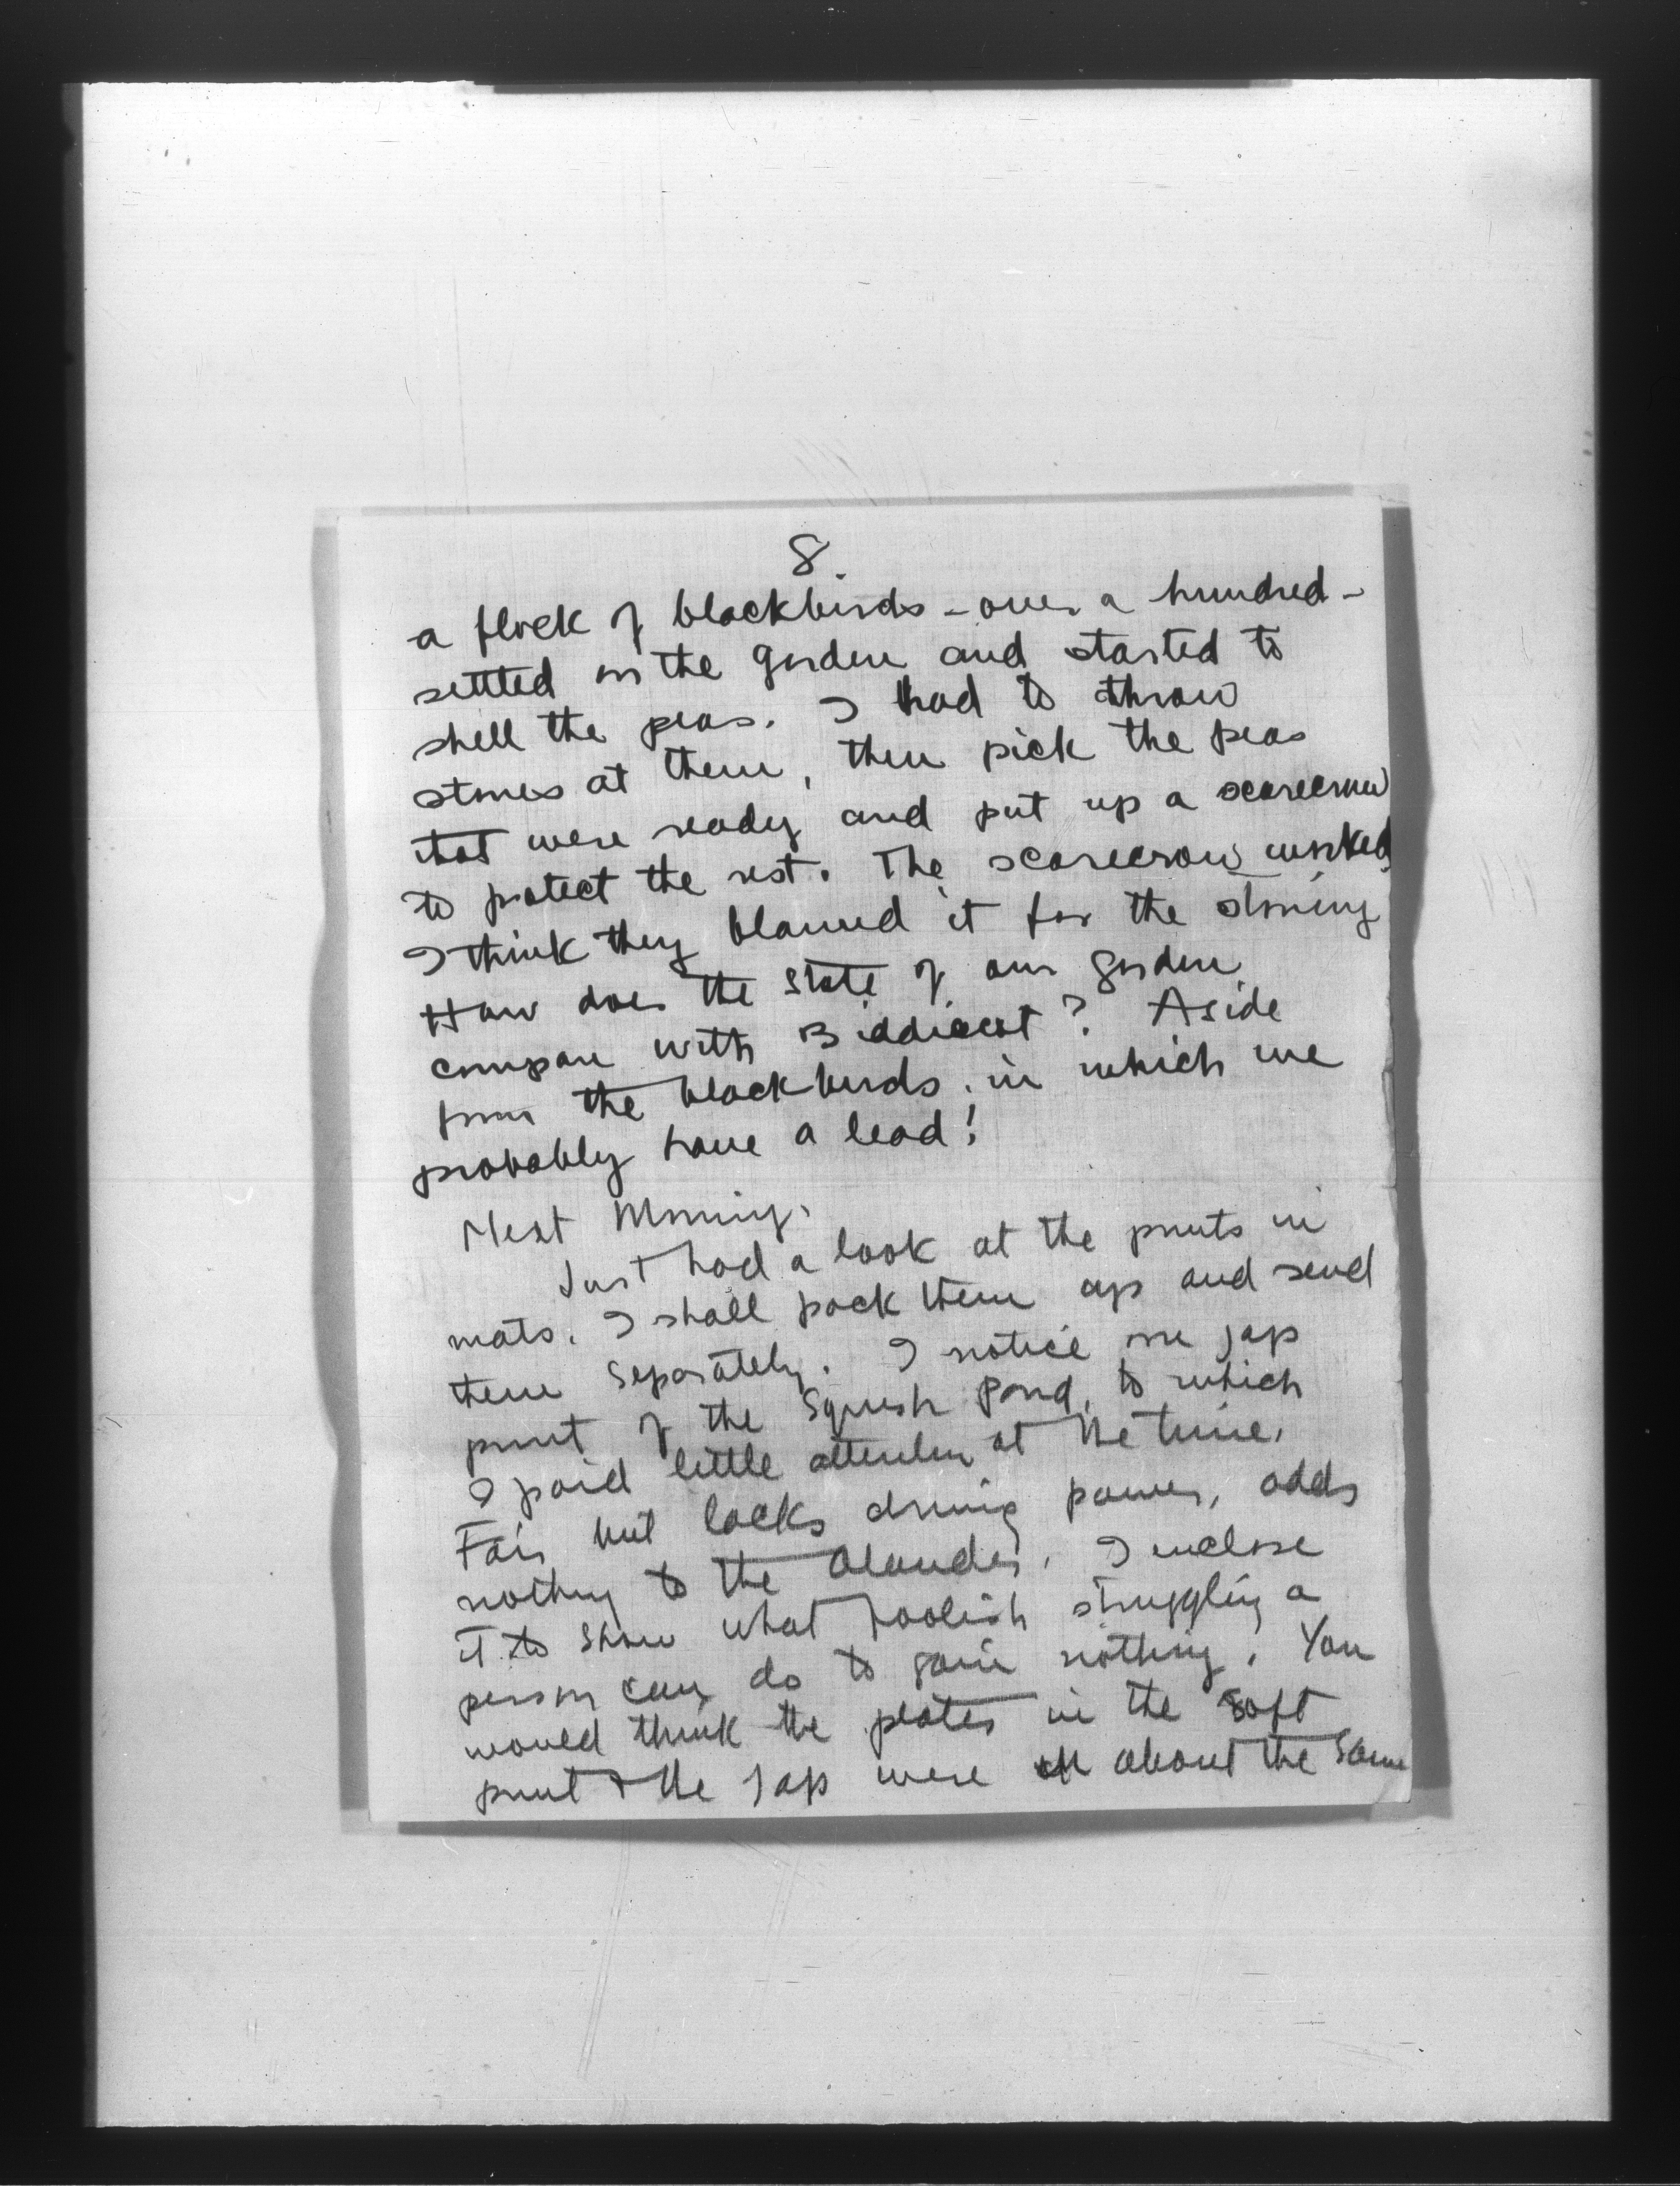 8.
a flock of blackbirds - over a hundred -
settled in the garden and started to
shell the peas. I had to throw
stones at them, then pick the peas
that were ready and put up a scarecrow
to protect the rest. The scarecrow worked
I think they blamed it for the stoning
How does the state of our garden
compare with ? Aside
from the blackbirds, in which we
probably have a lead!
Next Morning.
Just had a look at the prints in
mats. I shall pack them up and send
them separately. I notice one Jap
print of the Squash Pond, to which
I paid little attention at the time.
Fair but lacks driving power, adds
nothing to the . I enclose
it to show what foolish struggling a
person can do to gain nothing. You
would think the plates in the soft
print + the Jap were about the same